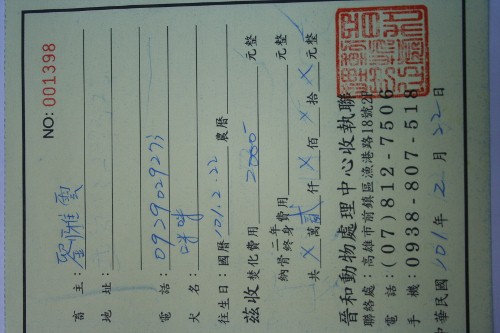 NO: 001398
畜主：劉雅雲
地址：
電話：0929029273
犬名：咩咩
往生日：國曆101.2.22農曆
茲收 焚化費用2000元整
納骨二年終身費用元整
共X萬貳仟X佰X拾X元整
晉和動物處理中心收執聯
聯絡處：高雄市前鎮區漁港路18號2F
電話：(07)812-7506
手機：0938-807-518
中華民國101年2月22日